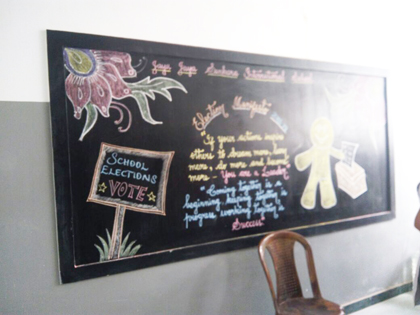 Jaya Jaya Sankara International School
Election Manifest
"If your actions inspire
others to dream more, learn
more, do more and become
more - You are a Leader"
"Coming together is a
beginning, keeping together is
progress, working together is
Success"
SCHOOL
ELECTIONS
VOTE